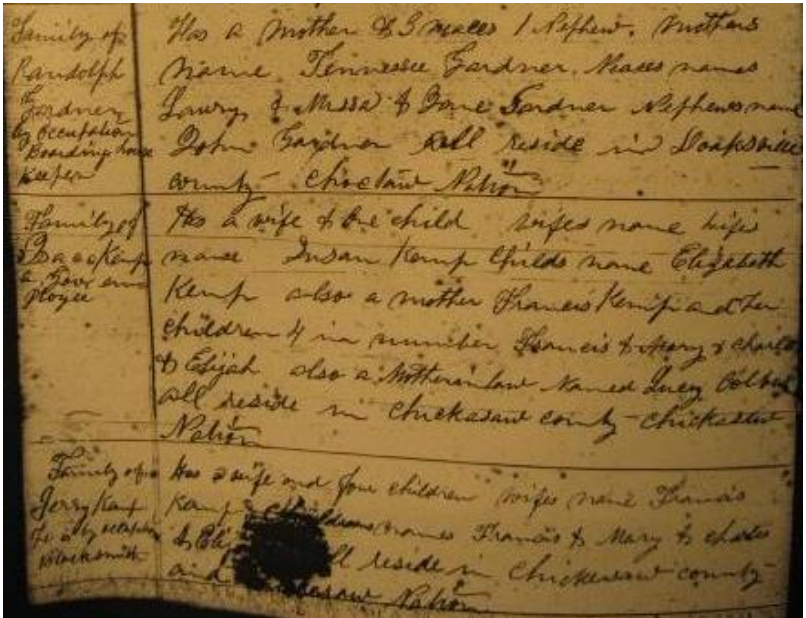 Family of
Randolph
Gardner
by occupation
Boarding house
Keeper
Has a mother & 3 neaces 1 Nephew. Mothers
name Tennessee Gardner. Neaces names
Lawry & Missa & Jane Gardner Nephews name
John Gardner all reside in Doaksville
county Choctaw Nation
Family of
Isaac Kemp
a Gover em
ployee
Has a wife & one child wifes name wifes
name Susan Kemp Childs name Elizabeth
Kemp also a mother Francis Kemp and her
children 4 in number Francis & Mary & Charles
& Elijah also a Motherinlaw Named Lucy Colbert
all reside in Chickasaw county Chickasaw
Nation
Family of
Jerry Kemp
he is by occupation
Blacksmith
Has a wife and four children wifes name Francis
Kemp Childrens names Francis & Mary & Charles
& Eli ll reside in Chickasaw county
and asaw Nation